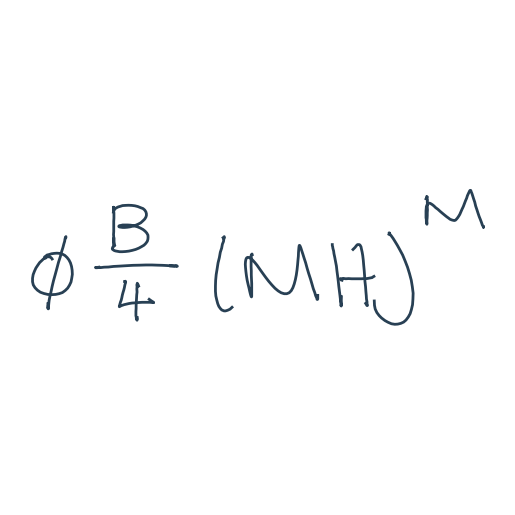 $\phi \frac{B}{4} (MH)^{M}$